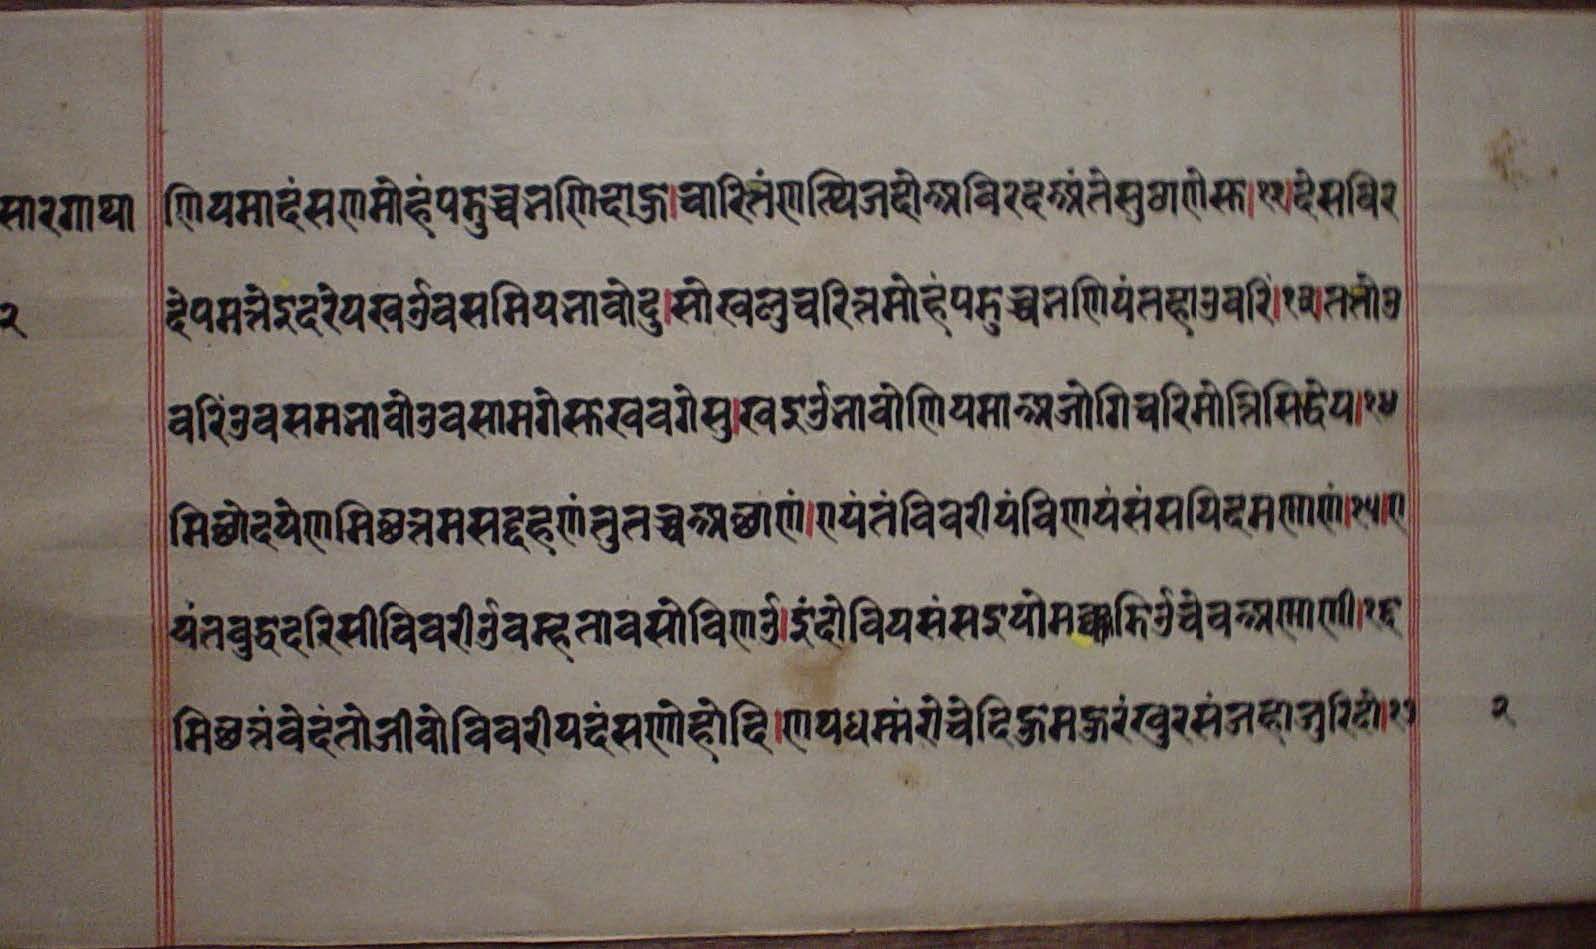 सारगाथा णियमादंसणमोहंपडुच्चभणिदाहु।चारित्तंणत्थिजदोअविरदअंतेसुठाणेसु।१२।देसविर
२ देपमत्तेइदरेयखओवसमियभावोदु।सोखलुचरित्तमोहंपडुच्चभणियंतहाउवरिं।१३।तत्तोउ
वरिंउवसमभावोउवसामगेसुखवगेसु।खइओभावोणियमाअजोगिचरिमोत्तिसिद्धेय।१४
मिच्छोदयेणमिच्छत्तमसद्दहणंतुतच्चअत्थाणं।एयंतंविवरीयंविणयंसंसयिदमण्णाणं।१५।ए
यंतबुद्धदरिसीविवरीओबम्हतावसोविणओ।इंदोवियसंसइयोमक्कडिओचेवअण्णाणी।१६
मिच्छत्तंवेदंतोजीवोविवरीयदंसणोहोदि।णयधम्मंरोचेदिहुमहुरंखुरसंजहाजुरिदो।१७ २